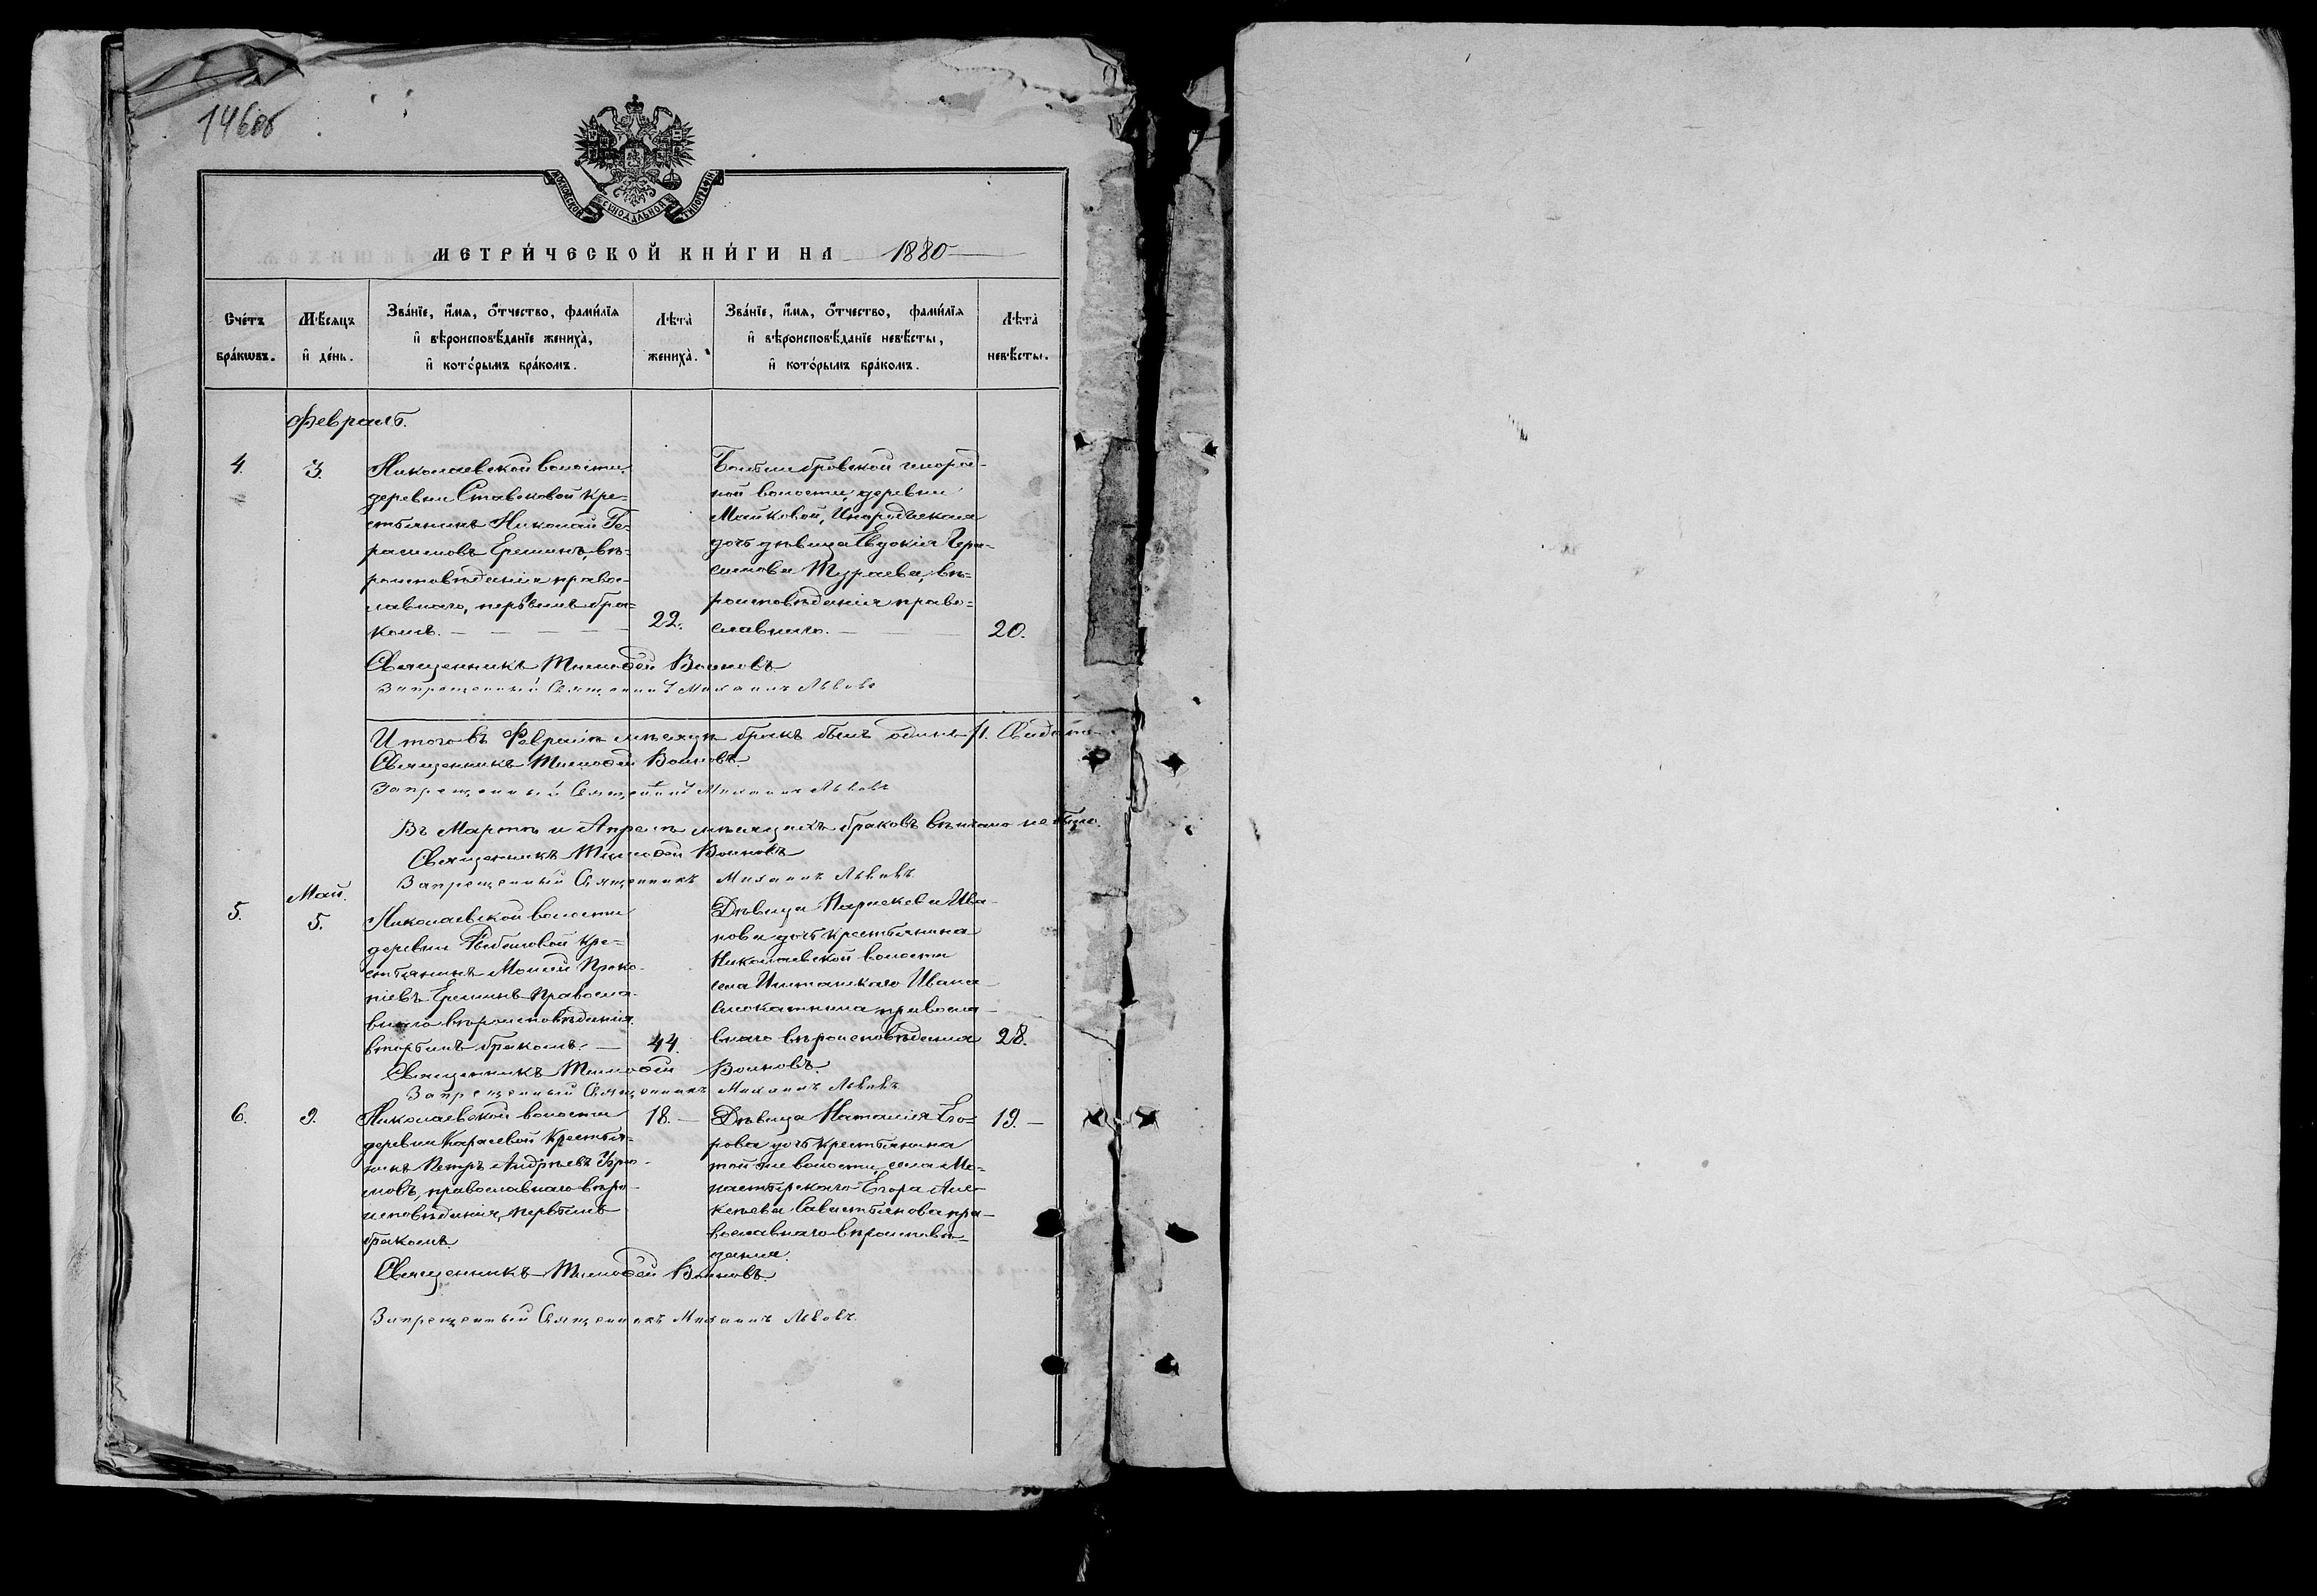 146об
МОСКОВСКОЙ СѴНОДАЛЬНОЙ ТИПОГРАФІИ
МЕТРИ́ЧЕСКОЙ КНИ́ГИ НА 1880
Сче́тъ бра́кѡвъ.
Мѣ́сяцъ и҆ де́нь.
Зва́нїе, и҆́мя, ѻ҆́тчество, фами́лїя
и҆ вѣроисповѣ́данїе жениха̀,
и҆ кото́рымъ бра́комъ.
Лѣта̀ жениха̀.
Зва́нїе, и҆́мя, ѻ҆́тчество, фами́лїя
и҆ вѣроисповѣ́данїе невѣ́сты,
и҆ кото́рымъ бра́комъ.
Лѣта̀ невѣ́сты.
Февраль.
4.
3.
Николаевской волости
деревни Ставсковой кре-
стьянинъ Николай Ге-
расимовъ Ереминъ, вѣ-
роисповѣданія право-
славнаго, первымъ бра-
комъ.
22.
ной волости, деревни
Майковой, Инородческая
дочь дѣвица Евдокія Гера-
симова Тураева, вѣ-
роисповѣданія право-
славнаго.
20.
Священникъ Тимофей Воиновъ
Запрещенный Священникъ Михаилъ Львовъ
Итого въ Февралѣ мѣсяцѣ бракъ былъ одинъ /1.
Священникъ Тимофей Воиновъ.
Запрещенный Священникъ Михаилъ Львовъ
Въ Мартѣ и Апрелѣ мѣсяцахъ браковъ вѣнчано не было.
Священникъ Тимофей Воиновъ
Запрещенный Священникъ Михаилъ Львовъ
Май.
5.
5.
Николаевской волости
деревни кре-
стьянинъ Моисей Проко-
піевъ Ереминъ Правосла-
внаго вѣроисповѣданія
вторымъ бракомъ.
44.
Дѣвица Параскева Ива-
нова дочь крестьянина
Николаевской волости
села Ивана
правосла-
внаго вѣроисповѣданія
28.
Священникъ Тимофей Воиновъ.
Запрещенный Священникъ Михаилъ Львовъ
6.
9.
Николаевской волости
деревни Карасевой Крестья-
нинъ Петръ Андреевъ
православнаго вѣро-
исповѣданія, первымъ
бракомъ.
18.
Дѣвица Наталія Его-
рова дочь крестьянина
той же волости, села Мо-
настырскаго Егора Але-
ксѣева Савастьянова пра-
вославнаго вѣроисповѣ-
данія.
19.
Священникъ Тимофей Воиновъ.
Запрещенный Священникъ Михаилъ Львовъ.